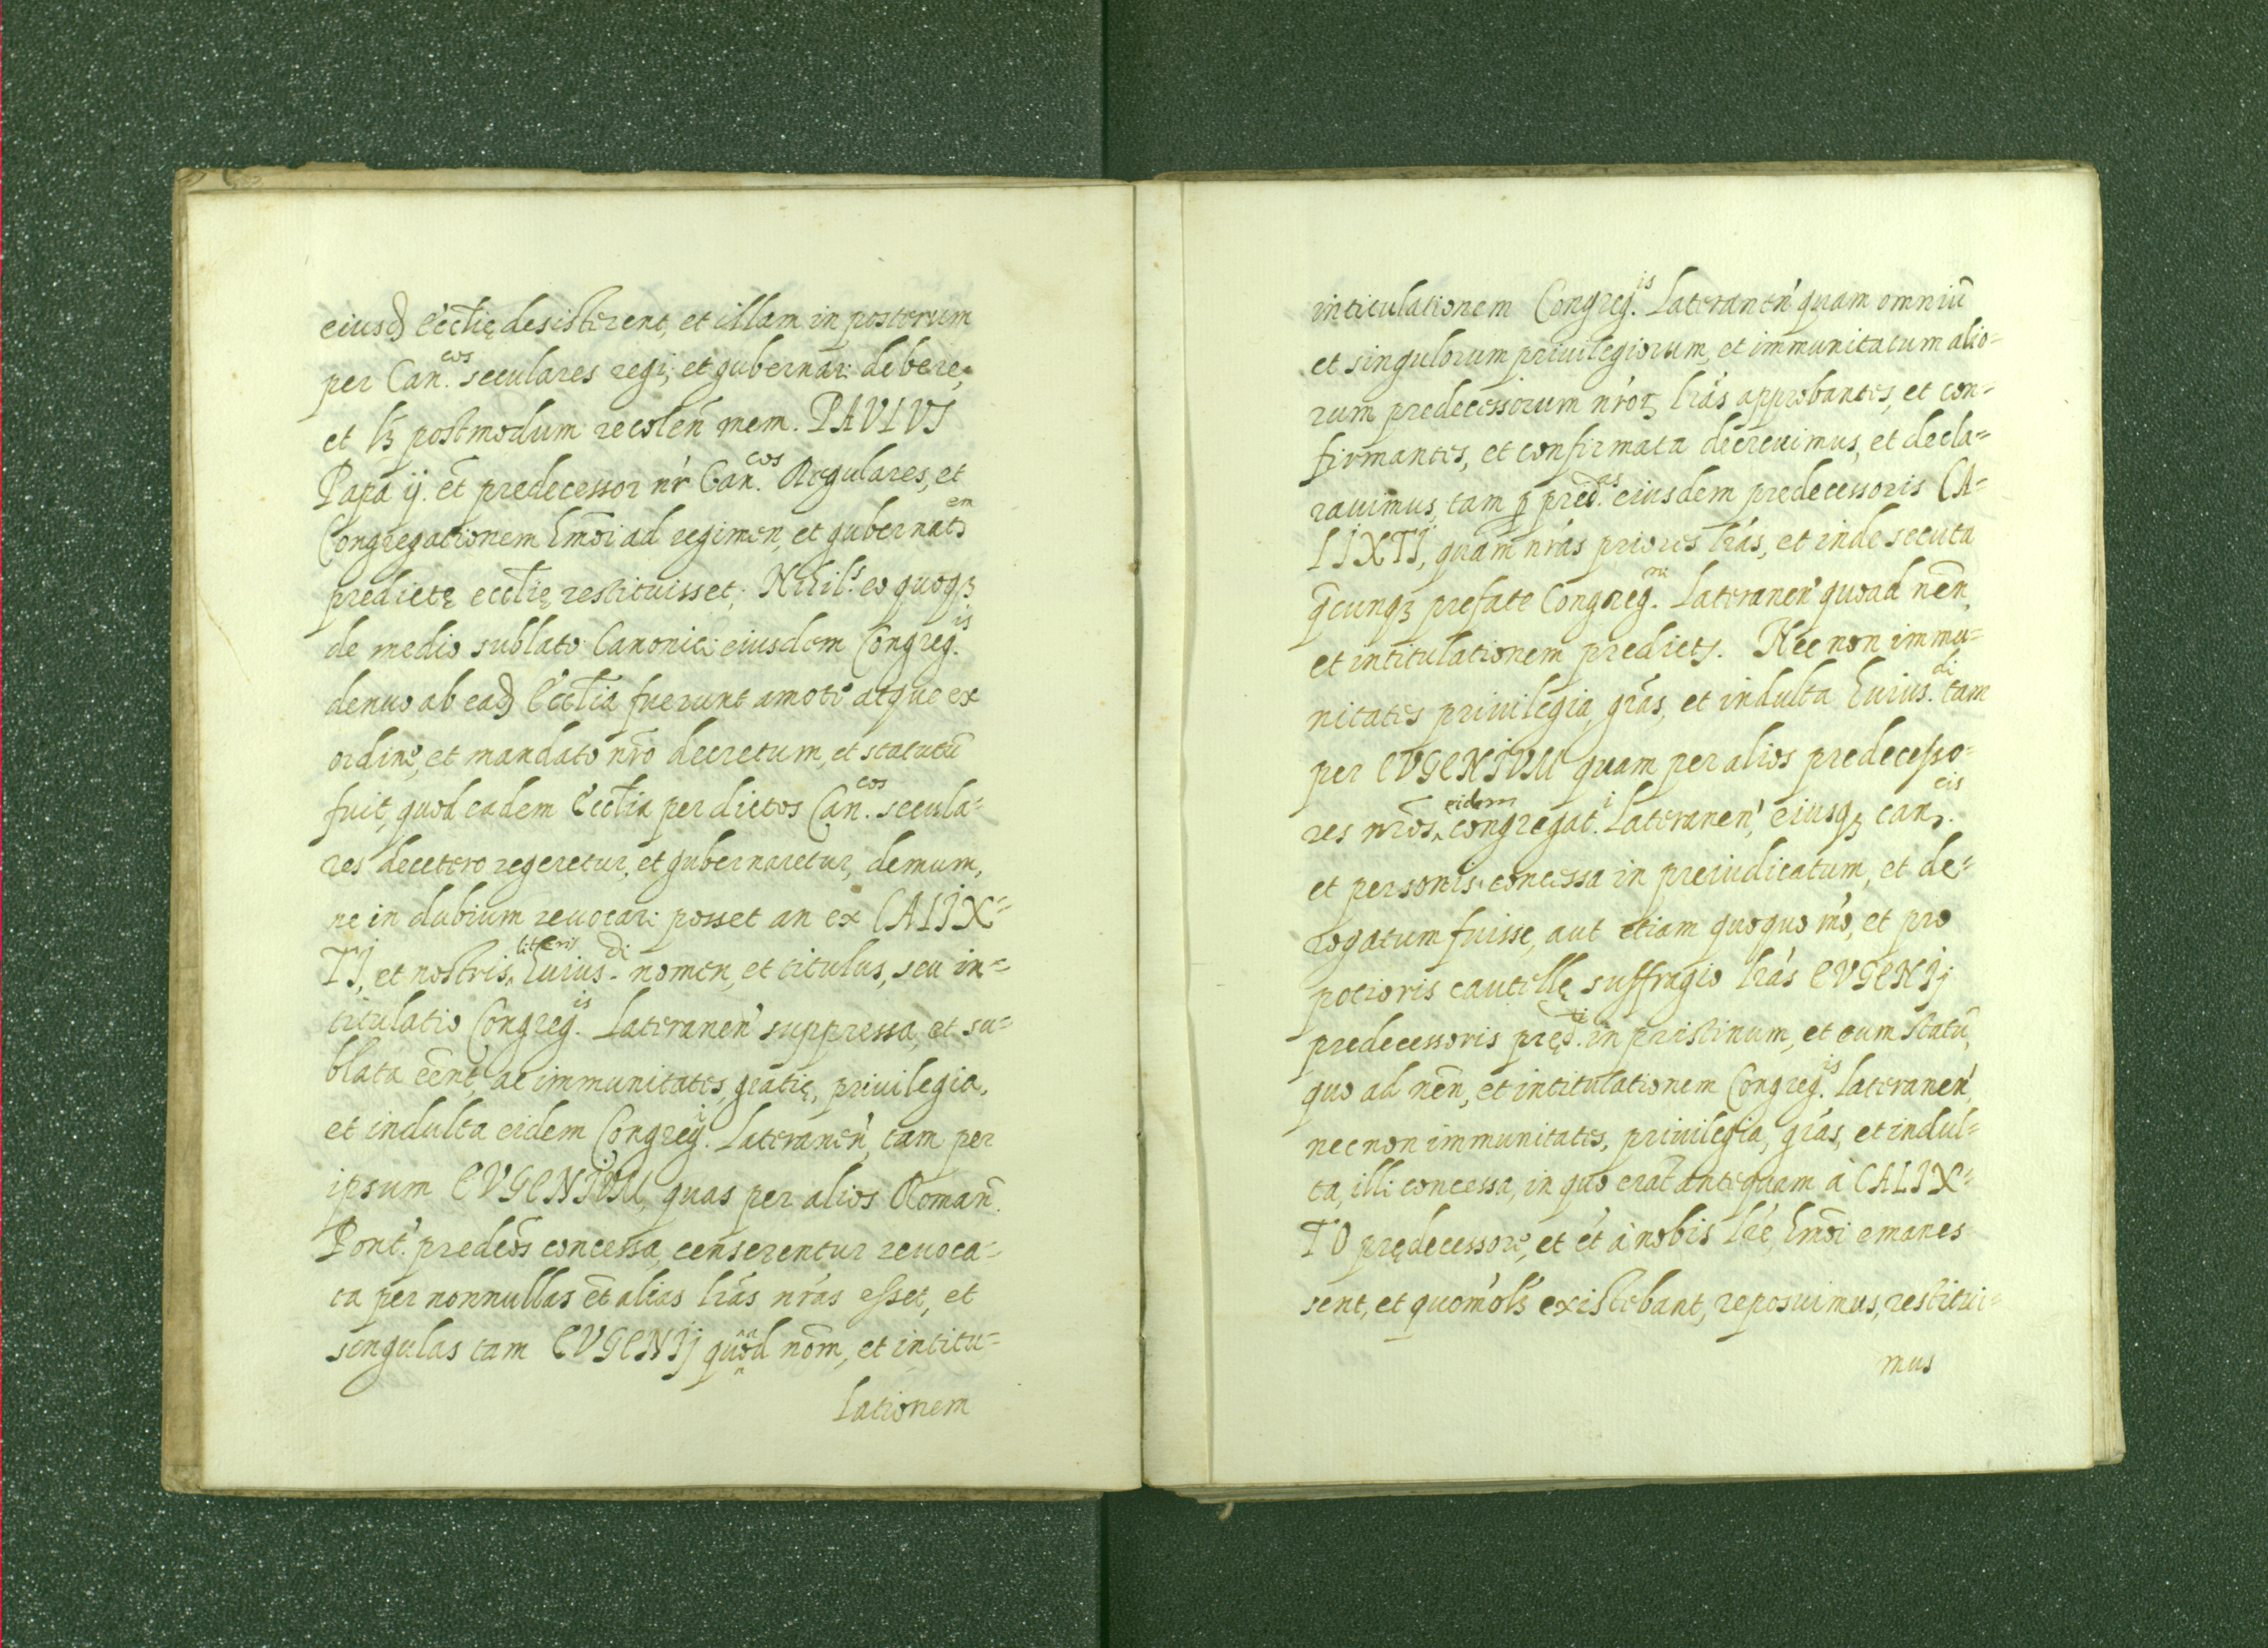 eiusd Ecctię desisterent, et illam in posterum
per Can.cos seculares regi, et gubernari debere,
et lꝫ postmodum recolen mem. PAVLVS
Papa ij. et̃ predecessor nr̃ Can.cos Regulares, et
Congregationem hm̃oi ad regimen, et gubernat.em
predictę ecctię restituisset; Nihils. eo quoqꝫ
de medio sublato Canonici eiusdem Congreg.is
denuo ab ead Ecctia fuerunt amoti atque ex
ordine, et mandato nr̃o decretum, et statutũ
fuit, quod eadem Ecctia per dictos Can.cos secula=
res decetero regeretur, et gubernaretur, demum,
ne in dubium reuocari posset an ex CALIX=
TI, et nostris literis huius.di nomen, et titulus, seu in=
titulatio Congreg.is Lateranen' suppressa, et su=
blata eẽnt, ac immunitates, gratię, priuilegia,
et indulta eidem Congreg.i Lateranen', tam per
ipsum EVGENIVM, quas per alios Roman̄.
Pont'. predeõs concessa, censerentur reuoca=
ta per nonnullas et̃ alias lr̃as nr̃as esset, et
singulas tam EVGENIJ quod nom̃, et intitu=
lationem
intitulationem Congreg.is Lateranen' quam omniũ
et singulorum priuilegiorum, et immunitatum alio=
rum predecessorum nr̃oꝝ lr̃as approbantes, et con=
firmantes, et confirmata decreuimus, et decla=
rauimus, tam ꝑ pred.as eiusdem predecessoris CA=
LIXTI, quam nr̃as priores lr̃as, et inde secuta
q̃cunqꝫ prefate Congreg.ni Lateranen' quoad nẽn,
et intitulationem predictṣ. Nec non immu=
nitates priuilegia, gr̃as, et indulta huius.di tam
per EVGENIVM quam per alios predecesso=
res nr̃os, eidem congregat.i Lateranen', eiusqꝫ can.cis
et personis concessa in preiudicatum, et de=
rogatum fuisse, aut etiam quoquo mõ, et pro
potioris cautellę suffragio lr̃as EVGENIJ
predecessoris pręd.ti in pristinum, et eum statũ,
quo ad nẽn, et intitulationem Congreg.is Lateranen',
necnon immunitates, priuilegia, gr̃as, et indul=
ta, illi concessa, in quo erat antequam à CALIX=
TO prędecessore, et et̃ à nobis lr̃e hm̃oi emanes
sent, et quom̃ols existebant, reposuimus, restitui=
mus